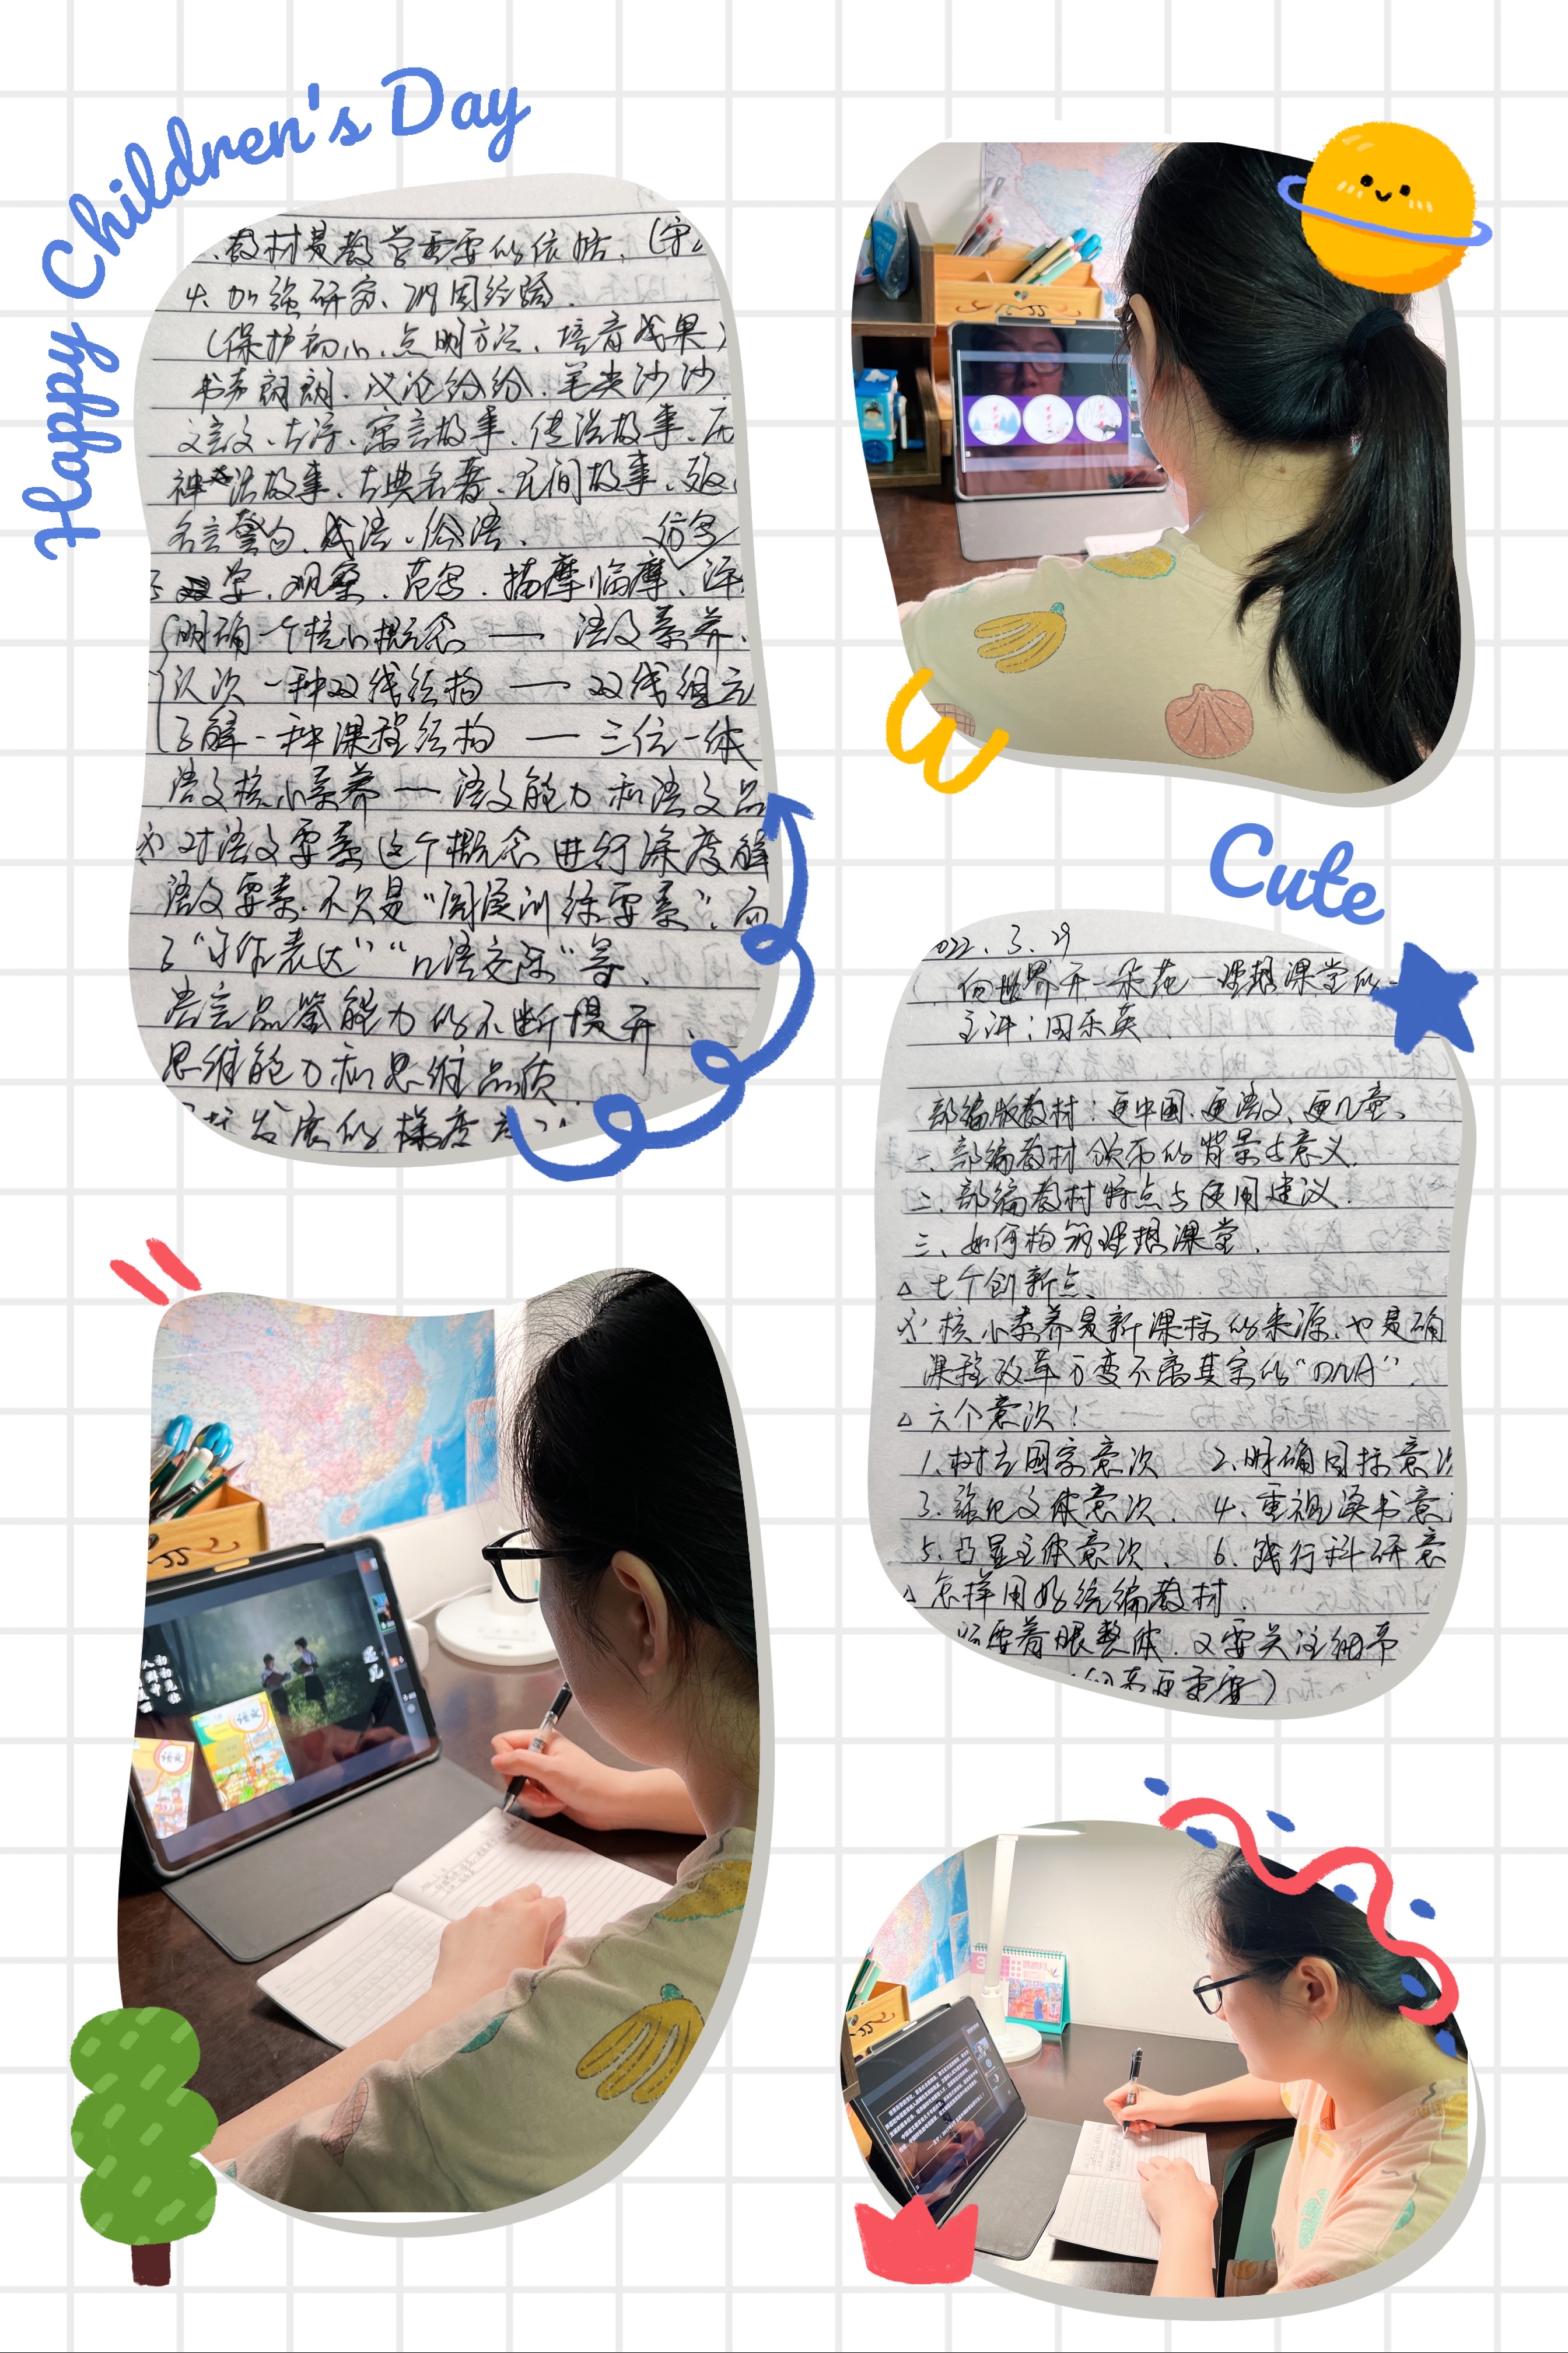 Happy Children's Day
教材是教学重要的依据.
4. 加强研究、巩固经验.
(保护初心、点明方法、培育成果)
书声朗朗、议论纷纷、笔尖沙沙
文言文、古诗、寓言故事、传说故事、历
神话故事、古典名著、民间故事、
名言警句、成语、俗语、
仿写
观察、范写、描摹临摹、评
明确一个核心概念 — 语文素养、
认识一种双线结构 — 双线组元
了解一种课程结构 — 三位一体
语文核心素养 — 语文能力和语文品
对语文要素这个概念进行深度解
语文要素.不只是“阅读训练要素”.而
了“习作表达”“口语交际”等、
语言品鉴能力的不断提升、
思维能力和思维品质、
Cute
2022.3.29
向世界开一朵花—理想课堂的
主讲:
部编版教材:更中国、更语文、更儿童、
一、部编教材颁布的背景与意义.
二、部编教材特点与使用建议.
三、如何构筑理想课堂、
△ 七个创新点、
核心素养是新课标的来源,也是确
课程改革万变不离其宗的“DNA”.
△ 六个意识!
1.树立国家意识 2.明确目标意识
3.强化文体意识、4.重视读书意
5.凸显主体意识、6.践行科研意
△ 怎样用好统编教材、
要着眼整体.又要关注细节
(细节更重要)
遇见
语文
语文